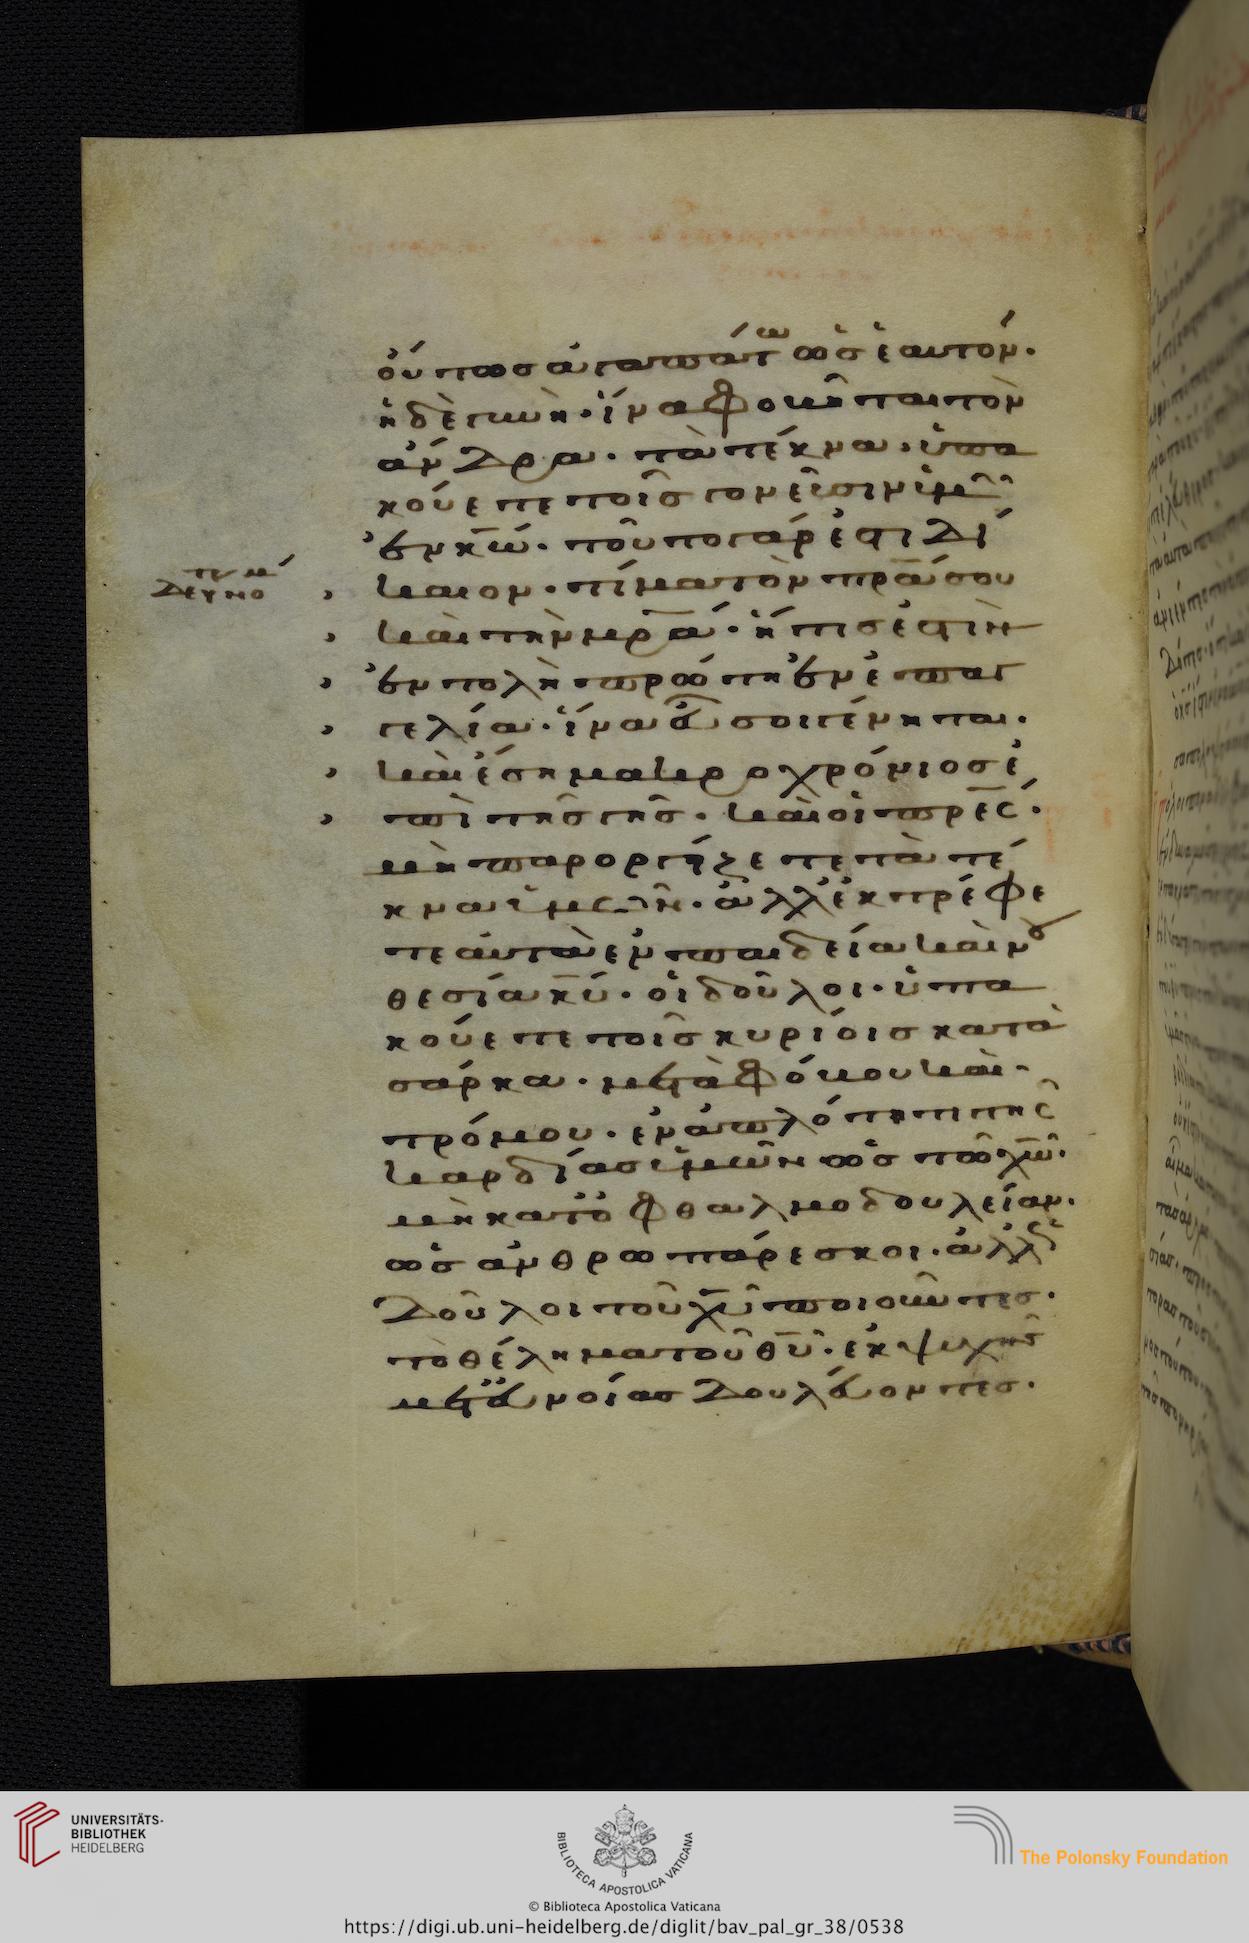 οὕτως ἀγαπάτω ὡς ἑαυτόν·
ἡ δὲ γυνὴ· ἵνα φοβῆται τὸν
ἄνδρα· τὰ τέκνα· ὑπα
κούετε τοῖς γονεῦσιν ὑμῶν
ἐν κω· τοῦτο γάρ ἐστι δί
καιον· τίμα τὸν πρα σου
καὶ τὴν μρα· ἥτις ἐστὶν
ἐντολὴ πρώτη ἐν ἐπαγ
γελία· ἵνα εὖ σοι γένηται·
καὶ ἔση μακροχρόνιος ἐ
πὶ τῆς γῆς· καὶ οἱ πρες·
μὴ παροργίζετε τὰ τέ
κνα ὑμῶν· ἀλλ' ἐκτρέφε
τε αὐτὰ ἐν παιδεία καὶ νου
θεσία κυ· οἱ δοῦλοι· ὑπα
κούετε τοῖς κυρίοις κατὰ
σάρκα· μετὰ φόβου καὶ
τρόμου· ἐν ἁπλότητι τῆς
καρδίας ὑμῶν ὡς τῶ χω·
μὴ κατ' ὀφθαλμοδουλείαν·
ὡς ἀνθρωπάρεσκοι· ἀλλ' ὡς
δοῦλοι τοῦ χυ ποιοῦντες·
τὸ θέλημα τοῦ θυ· ἐκ ψυχῆς
μετ' εὐνοίας δουλεύοντες·
δευνο
UNIVERSITÄTS-
BIBLIOTHEK
HEIDELBERG
BIBLIOTECA APOSTOLICA VATICANA
The Polonsky Foundation
© Biblioteca Apostolica Vaticana
https://digi.ub.uni-heidelberg.de/diglit/bav_pal_gr_38/0538